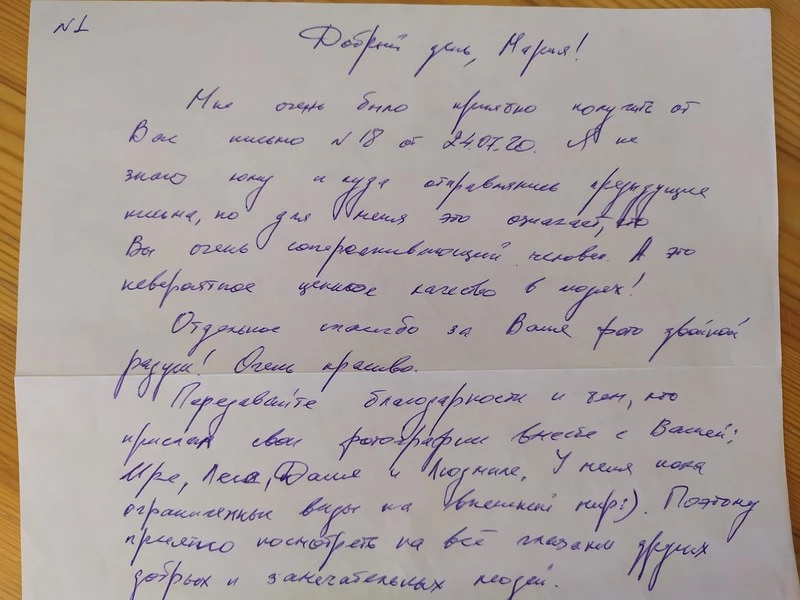 N1
Добрый день, Мария!
Мне очень было приятно получить от
Вас письмо N18 от 24.07.20. Я не
знаю кому и куда отправлялись предыдущие
письма, но для меня это означает, что
Вы очень сопереживающий человек. А это
невероятное ценное качество в людях!
Отдельное спасибо за Ваше фото двойной
радуги! Очень красиво.
Передавайте благодарности и тем, кто
прислал свои фотографии вместе с Вашей:
Ире, Леса, Даше и Людмиле. У меня пока
ограниченные виды на внешний мир:). Поэтому
приятно посмотреть на всё глазами других
добрых и замечательных людей.